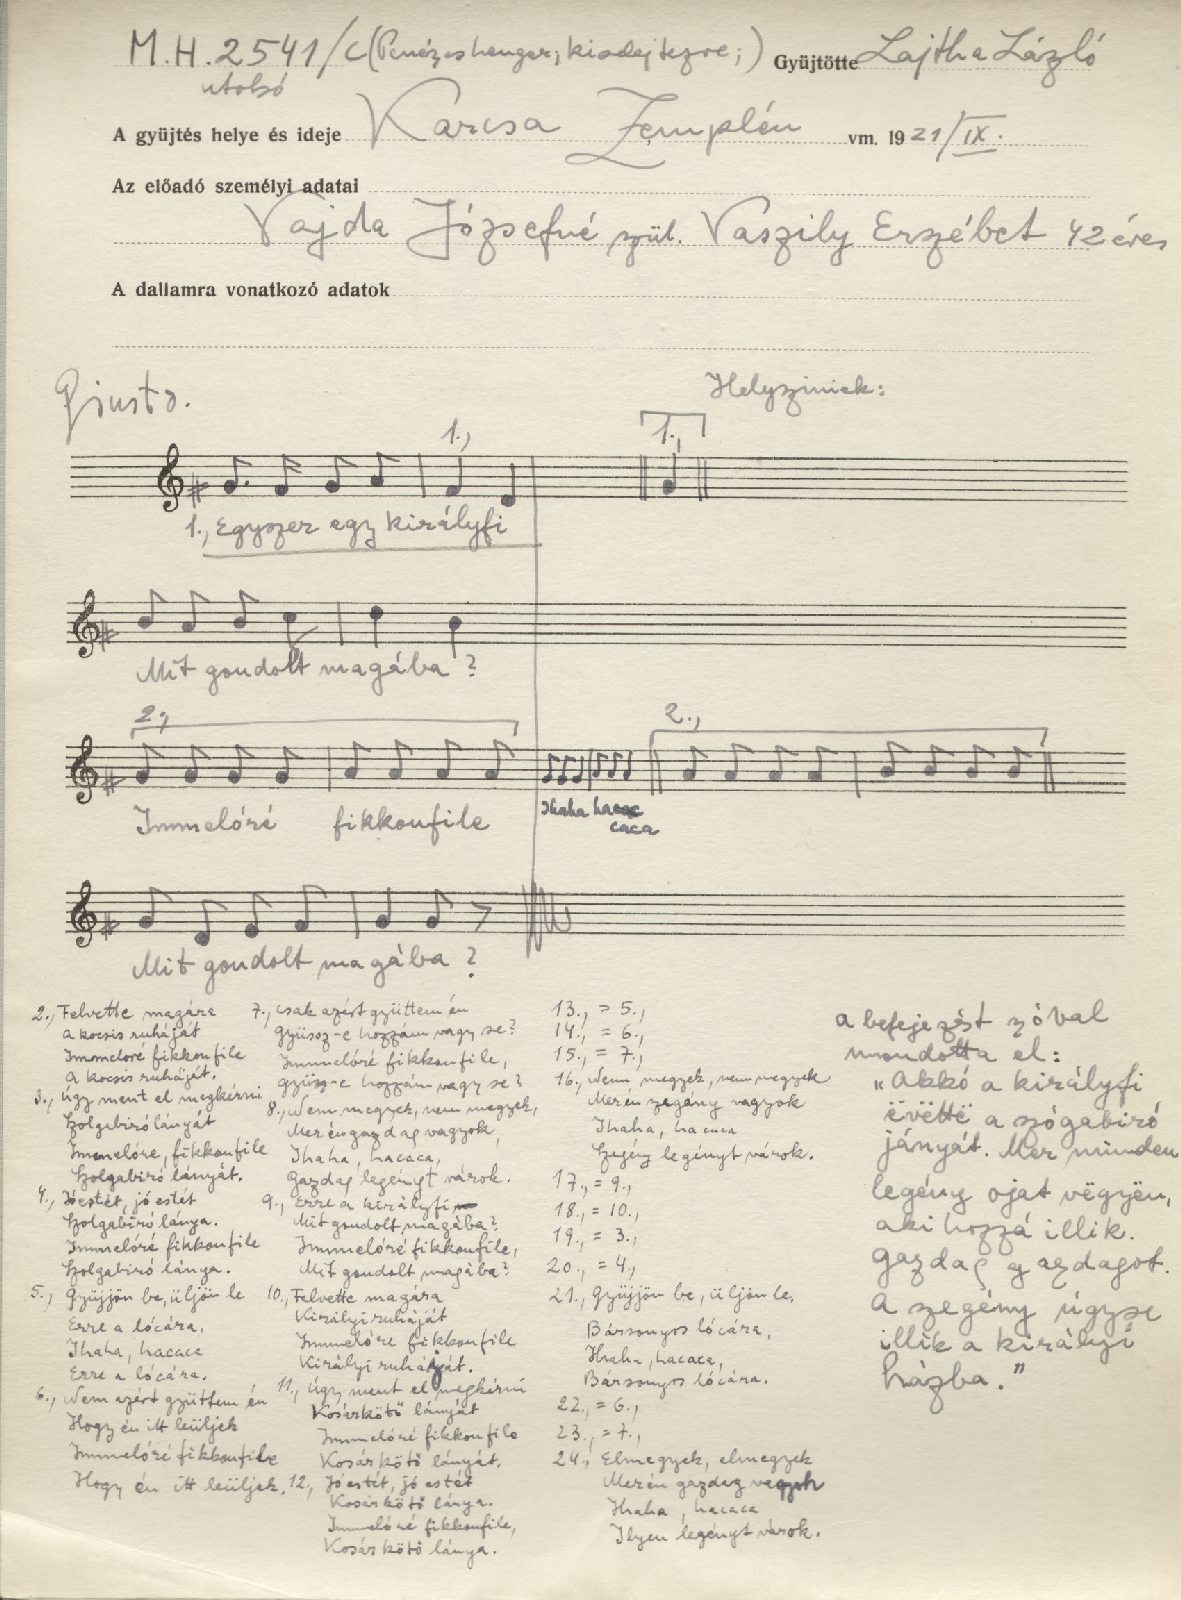 M.H. 2541/c (Penézes henger; kisdejtezve;) Gyüjtötte Lajtha László
utolsó
A gyüjtés helye és ideje Karcsa Zemplén vm. 1921/IX.
Az előadó személyi adatai
Vajda Józsefné szül. Vaszily Erzsébet 42 éves
A dallamra vonatkozó adatok
Giusto.
Helysziniek:
1.,
1.,
1., Egyszer egy királyfi
Mit gondolt magába?
2.,
2.,
Immelóré fikkonfile
Ihaha hacac
caca
Mit gondolt magába?
2., Felvette magára
A kocsis ruháját
Immelóré fikkonfile
A kocsis ruháját.
3., Úgy ment el megkérni
Szolgabiró lányát
Immelóre, fikkonfile
Szolgabiró lányát.
4., Jó estét, jó estét
Szolgabiró lánya.
Immelóré fikkonfile
Szolgabiró lánya.
5., Gyüjjön be, üljön le
Erre a lócára,
Ihaha, hacaca
Erre a lócára.
6., Nem azért gyüttem én
Hogy én itt leüljek
Immelóré fikkonfile
Hogy én itt leüljek.
7., Csak azért gyüttem én
Gyüssz-e hozzám vagy se?
Immelóré fikkonfile,
Gyüssz-e hozzám vagy se?
8., Nem megyek, nem megyek,
Mer én gazdag vagyok,
Ihaha, hacaca,
Gazdag legényt várok.
9., Erre a királyfi
Mit gondolt, magába?
Immelóré fikkonfile,
Mit gondolt magába?
10., Felvette magára
Királyi ruháját
Immelóre fikkonfile
Királyi ruháját.
11., Úgy ment el megkérni
Kosárkötő lányát
Immelóré fikkonfile
Kosárkötő lányát.
12., Jó estét, jó estét
Kosárkötő lánya.
Immelóré fikkonfile,
Kosárkötő lánya.
13., = 5.,
14., = 6.,
15., = 7.,
16., Nem, megyek, nem megyek
Mer én szegány vagyok
Ihaha, hacaca
Szegény legényt várok.
17., = 9.,
18., = 10.,
19., = 3.,
20., = 4.,
21., Gyüjjön be, üljön le,
Bársonyos lócára,
Ihaha, hacaca,
Bársonyos lócára.
22., = 6.,
23., = 7.,
24., Elmegyek, elmegyek
Mer én gazdag vagyok
Ihaha, hacaca
Ilyen legényt várok.
A befejezést szóval
mondotta el:
"Akkó a királyfi
ëvëttë a szógabiró
jányát. Mer minden
legény ojat vëgyën,
aki hozzá illik.
Gazdag gazdagot.
A szegény úgyse
illik a királyi
házba."